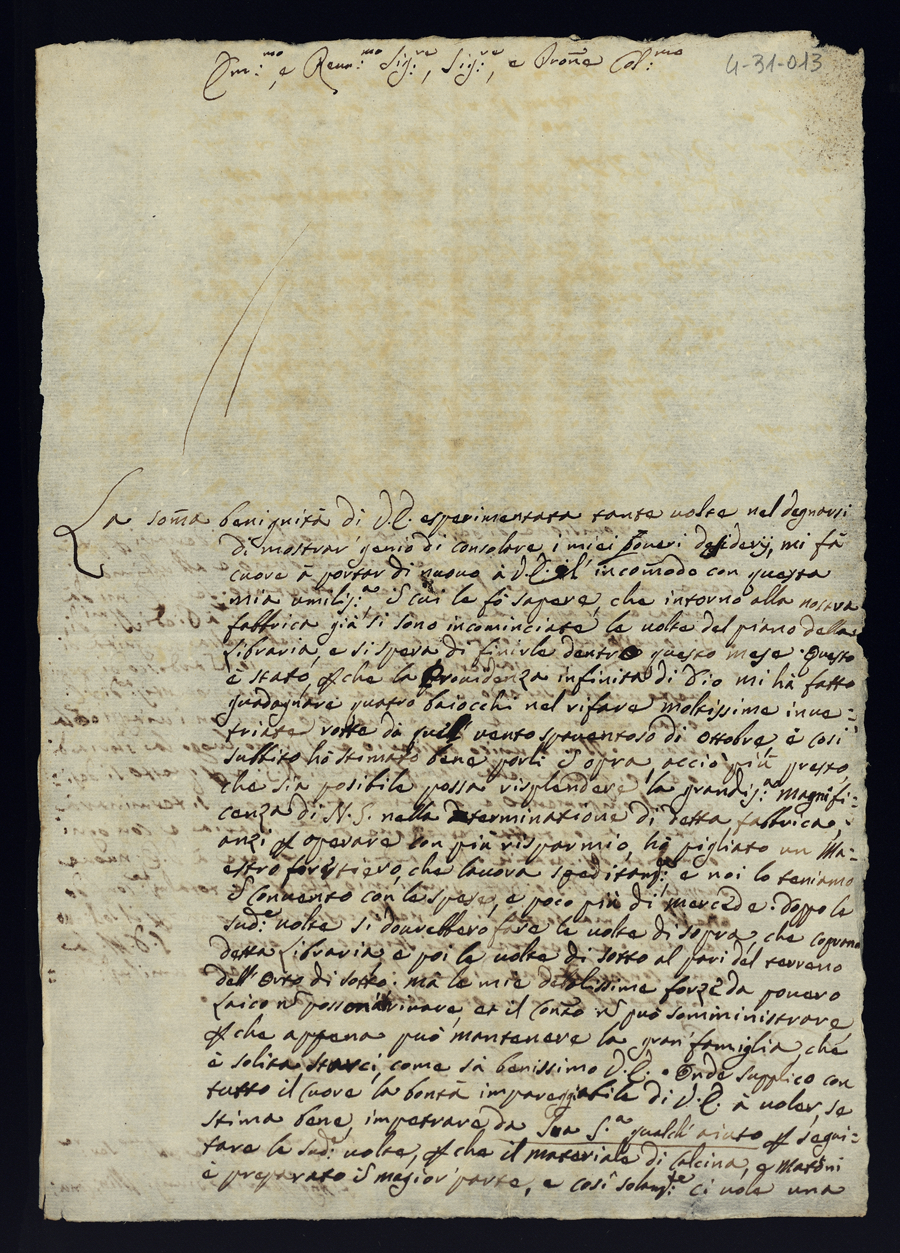 Em:mo, e Reuer:mo Sig:re, Sig:re, e Prone Col:mo
4-31-013
La somã benignità di V.E. esperimentata tante uolte nel degnarsi
di mostrar' genio di consolare i miei poueri desiderij, mi fà
cuore à portar di nuouo à V.E. l'incomõdo con questa
mia umilis:a cui le fò sapere, che intorno alla nostra
fabbrica già si sono incominciate le uolte del piano della
Libraria, e si spera di finirle dentro questo mese. Questo
è stato, che la Prouidenza infinita di Dio mi hà fatto
guadagnare quatro baiocchi nel rifare moltissime inue:
triate rotte da quell' uento spauentoso di Ottobre, e così
subbito hò stimato bene porli sopra, acciò più presto,
che sia posibile possa risplendere la grandis:a Magnifi:
cenza di N.S. nella determinatione di detta fabbrica,
anzi operare con più risparmio, hò pigliato un Ma:
estro forastiero, che lauora speditam:te e noi lo teniamo
Conuento con le spese, e poco più di mercede. Doppo le
sud:e uolte si dourebbero fare le uolte di sopra, che coprono
detta Libraria, e poi le uolte di sotto al pari del terreno
dell' Orto di sotto: mà le mie debolissime forze da pouero
Laico possono arriuare, et il può somministrare,
che appena può mantenere la gran' famiglia, che
è solita starci, come sà benissimo V.E. Onde supplico con
tutto il Cuore la bontà impareggiabile di V.E. à uoler, se
stima bene, impetrare da Sua S.a qualch' aiuto segui:
tare le sud:e uolte, che il materiale di Calcina, e Matoni
è preparato magior' parte, e così solam:te ci uole una